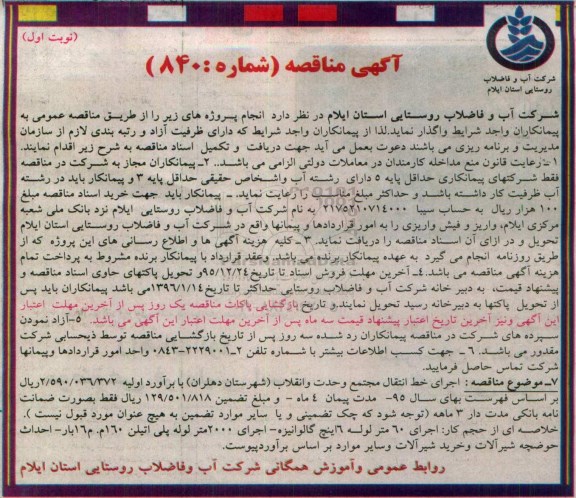 (نوبت اول)
شرکت آب و فاضلاب
روستایی استان ایلام
آگهی مناقصه (شماره :۸۴۰)
شرکت آب و فاضلاب روستایی استان ایلام در نظر دارد انجام پروژه های زیر را از طریق مناقصه عمومی به
پیمانکاران واجد شرایط واگذار نماید.لذا از پیمانکاران واجد شرایط که دارای ظرفیت آزاد و رتبه بندی لازم از سازمان
مدیریت و برنامه ریزی می باشند دعوت بعمل می آید جهت دریافت و تکمیل اسناد مناقصه به شرح زیر اقدام نمایند.
۱-رعایت قانون منع مداخله کارمندان در معاملات دولتی الزامی می باشد.. ۲-پیمانکاران مجاز به شرکت در مناقصه
فقط شرکتهای پیمانکاری حداقل پایه ۵ دارای رشته آب واشخاص حقیقی حداقل پایه ۳ و پیمانکار باید در رشته
آب ظرفیت کار داشته باشد و حداکثر مبلغ را رعایت نماید. پیمانکار باید جهت خرید اسناد مناقصه مبلغ
۱۰۰ هزار ریال به حساب سیبا ۲۱۷۵۲۱۰۷۱۴۰۰۰ به نام شرکت آب و فاضلاب روستایی ایلام نزد بانک ملی شعبه
مرکزی ایلام، واریز و فیش واریزی را به امور قراردادها و پیمانها واقع در شرکت آب و فاضلاب روستایی استان ایلام
تحویل و در ازای آن اسناد مناقصه را دریافت نماید. ۳-کلیه هزینه آگهی ها و اطلاع رسانی های این پروژه که از
طریق روزنامه انجام می گیرد به عهده پیمانکار برنده می باشد. وعقد قرارداد با پیمانکار برنده مشروط به پرداخت تمام
هزینه آگهی مناقصه می باشد.۴- آخرین مهلت فروش اسناد تا تاریخ ۹۵/۱۲/۲۴و تحویل پاکتهای حاوی اسناد مناقصه و
پیشنهاد قیمت، به دبیر خانه شرکت آب و فاضلاب روستایی حداکثر تا تاریخ ۱۳۹۶/۱/۱۴می باشد پیمانکاران باید پس
از تحویل پاکتها به دبیرخانه رسید تحویل نمایند.و تاریخ بازگشایی پاکات مناقصه یک روز پس از آخرین مهلت اعتبار
این آگهی ونیز آخرین تاریخ اعتبار پیشنهاد قیمت سه ماه پس از آخرین مهلت اعتبار این آگهی می باشد. ۵-آزاد نمودن
سپرده های شرکت در مناقصه پیمانکاران رد شده سه روز پس از تاریخ بازگشایی مناقصه توسط ذیحسابی شرکت
مقدور می باشد. ۶ - جهت کسب اطلاعات بیشتر با شماره تلفن ۲-۲۲۲۹۰۰۱-۰۸۴۳ واحد امور قراردادها وپیمانها
شرکت تماس حاصل فرمایید.
۷-موضوع مناقصه : اجرای خط انتقال مجتمع وحدت وانقلاب (شهرستان دهلران) با برآورد اولیه ۲/۵۹۰/۰۳۶/۳۷۲ریال
بر اساس فهرست بهای سال ۹۵- مدت پیمان ۴ ماه - و مبلغ تضمین ۱۲۹/۵۰۱/۸۱۸ ریال فقط بصورت ضمانت
نامه بانکی مدت دار ۳ ماهه (توجه شود که چک تضمینی و یا سایر موارد تضمین به هیچ عنوان مورد قبول نیست ).
خلاصه ای از حجم کار: اجرای ۶۰ متر لوله ۶اینچ گالوانیزه- اجرای ۲۰۰۰متر لوله پلی اتیلن ۱۶۰م. م۱۶بار- احداث
حوضچه شیرآلات وخرید شیرآلات وسایر موارد بر اساس برآوردپیوست.
روابط عمومی وآموزش همگانی شرکت آب وفاضلاب روستایی استان ایلام